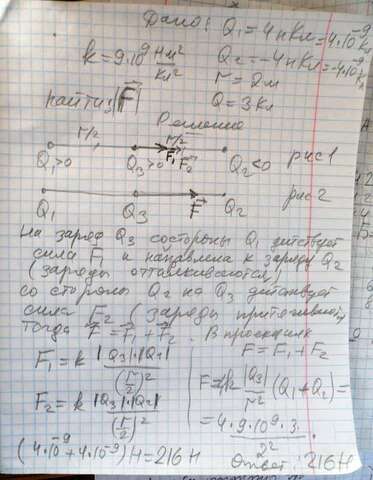 Дано: Q₁ = 4 нКл = 4·10⁻⁹ Кл
k = 9·10⁹ Нм²/Кл²
Q₂ = -4 нКл = -4·10⁻⁹ Кл
r = 2м
Q = 3 Кл
Найти: |F⃗|
Решение
r/2 r/2
Q₁>0 Q₃>0 F⃗₁ F⃗₂ Q₂<0 рис 1
Q₁ Q₃ F⃗ Q₂ рис 2
На заряд Q₃ со стороны Q₁ действует
сила F₁ и направлена к заряду Q₂
(заряды отталкиваются)
со стороны Q₂ на Q₃ действует
сила F₂ (заряды притягиваются)
Тогда F⃗ = F⃗₁ + F⃗₂. В проекциях
F = F₁ + F₂
F₁ = k |Q₃|·|Q₁| / (r/2)²
F = 4k |Q₃| / r² (Q₁ + Q₂) =
F₂ = k |Q₃|·|Q₂| / (r/2)²
= 4·9·10⁹·3 / 2² ·
(4·10⁻⁹ + 4·10⁻⁹) Н = 216 Н
Ответ: 216 Н